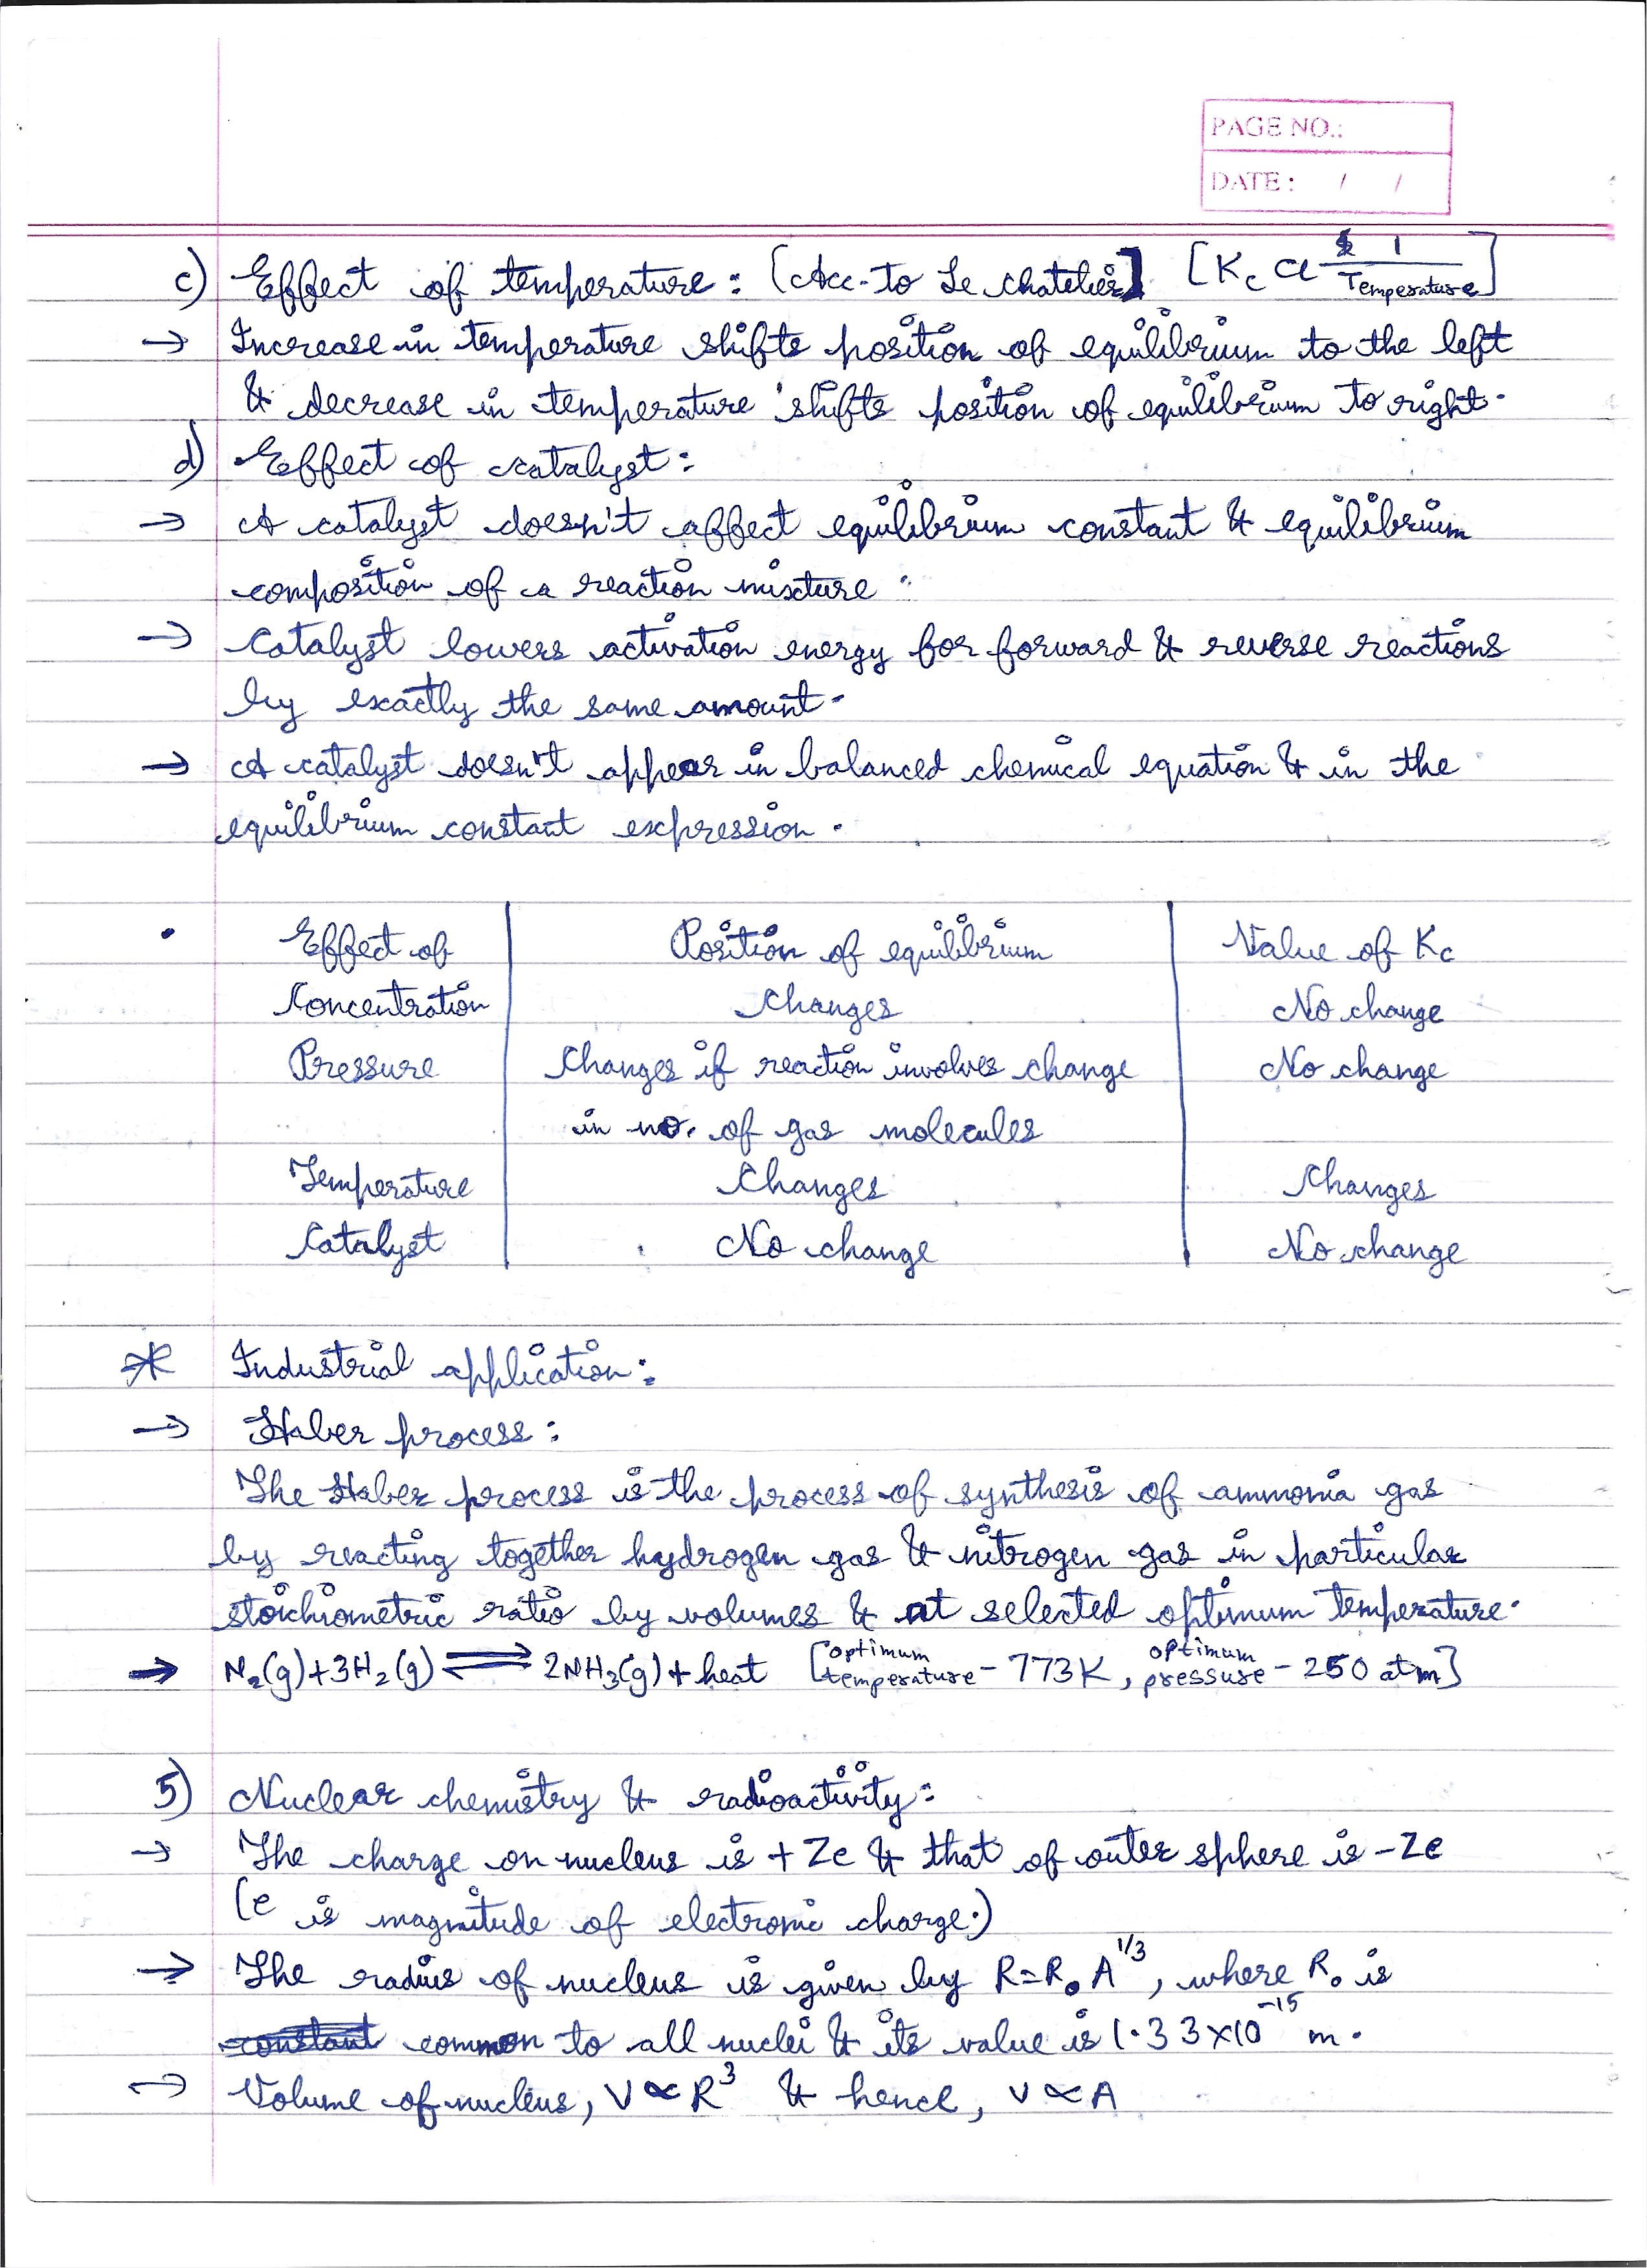 PAGE NO.:
DATE: / /
c) Effect of temperature: [Acc. to Le chatelier] [Kc α 1/Temperature]
→ Increase in temperature shifts position of equilibrium to the left
& decrease in temperature shifts position of equilibrium to right.
d) Effect of catalyst:
→ A catalyst doesn't affect equilibrium constant & equilibrium
composition of a reaction mixture.
→ Catalyst lowers activation energy for forward & reverse reactions
by exactly the same amount.
→ A catalyst doesn't appear in balanced chemical equation & in the
equilibrium constant expression.
• Effect of | Position of equilibrium | Value of Kc
Concentration | Changes | No change
Pressure | Changes if reaction involves change | No change
in no. of gas molecules
Temperature | Changes | Changes
Catalyst | No change | No change
* Industrial application:
→ Haber process:
The Haber process is the process of synthesis of ammonia gas
by reacting together hydrogen gas & nitrogen gas in particular
stoichiometric ratio by volumes & at selected optimum temperature.
→ N₂(g) + 3H₂(g) ⇌ 2NH₃(g) + heat [optimum temperature - 773K, optimum pressure - 250 atm]
5) Nuclear chemistry & radioactivity:
→ The charge on nucleus is +Ze & that of outer sphere is -Ze
(e is magnitude of electronic charge.)
→ The radius of nucleus is given by R=R₀A^1/3, where R₀ is
constant common to all nuclei & its value is 1.33×10⁻¹⁵ m.
→ Volume of nucleus, V∝R³ & hence, V∝A